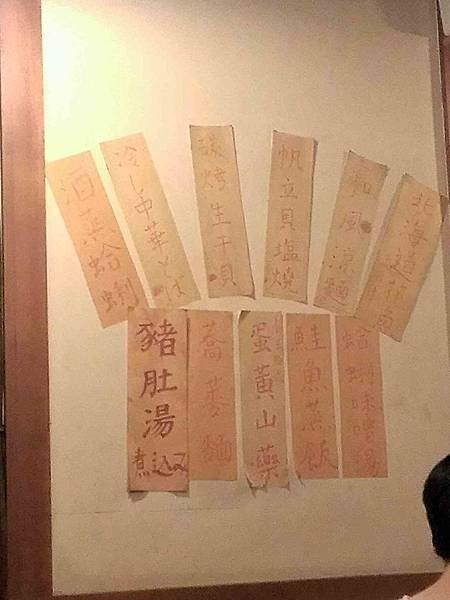 酒蒸蛤蜊
冷し中華そば
碳烤生干貝
帆立貝塩燒
和風涼麵
北海道
豬肚湯
煮込み
蕎麥麵
蛋黃山藥
鮭魚蒸飯
蛤蜊味噌湯